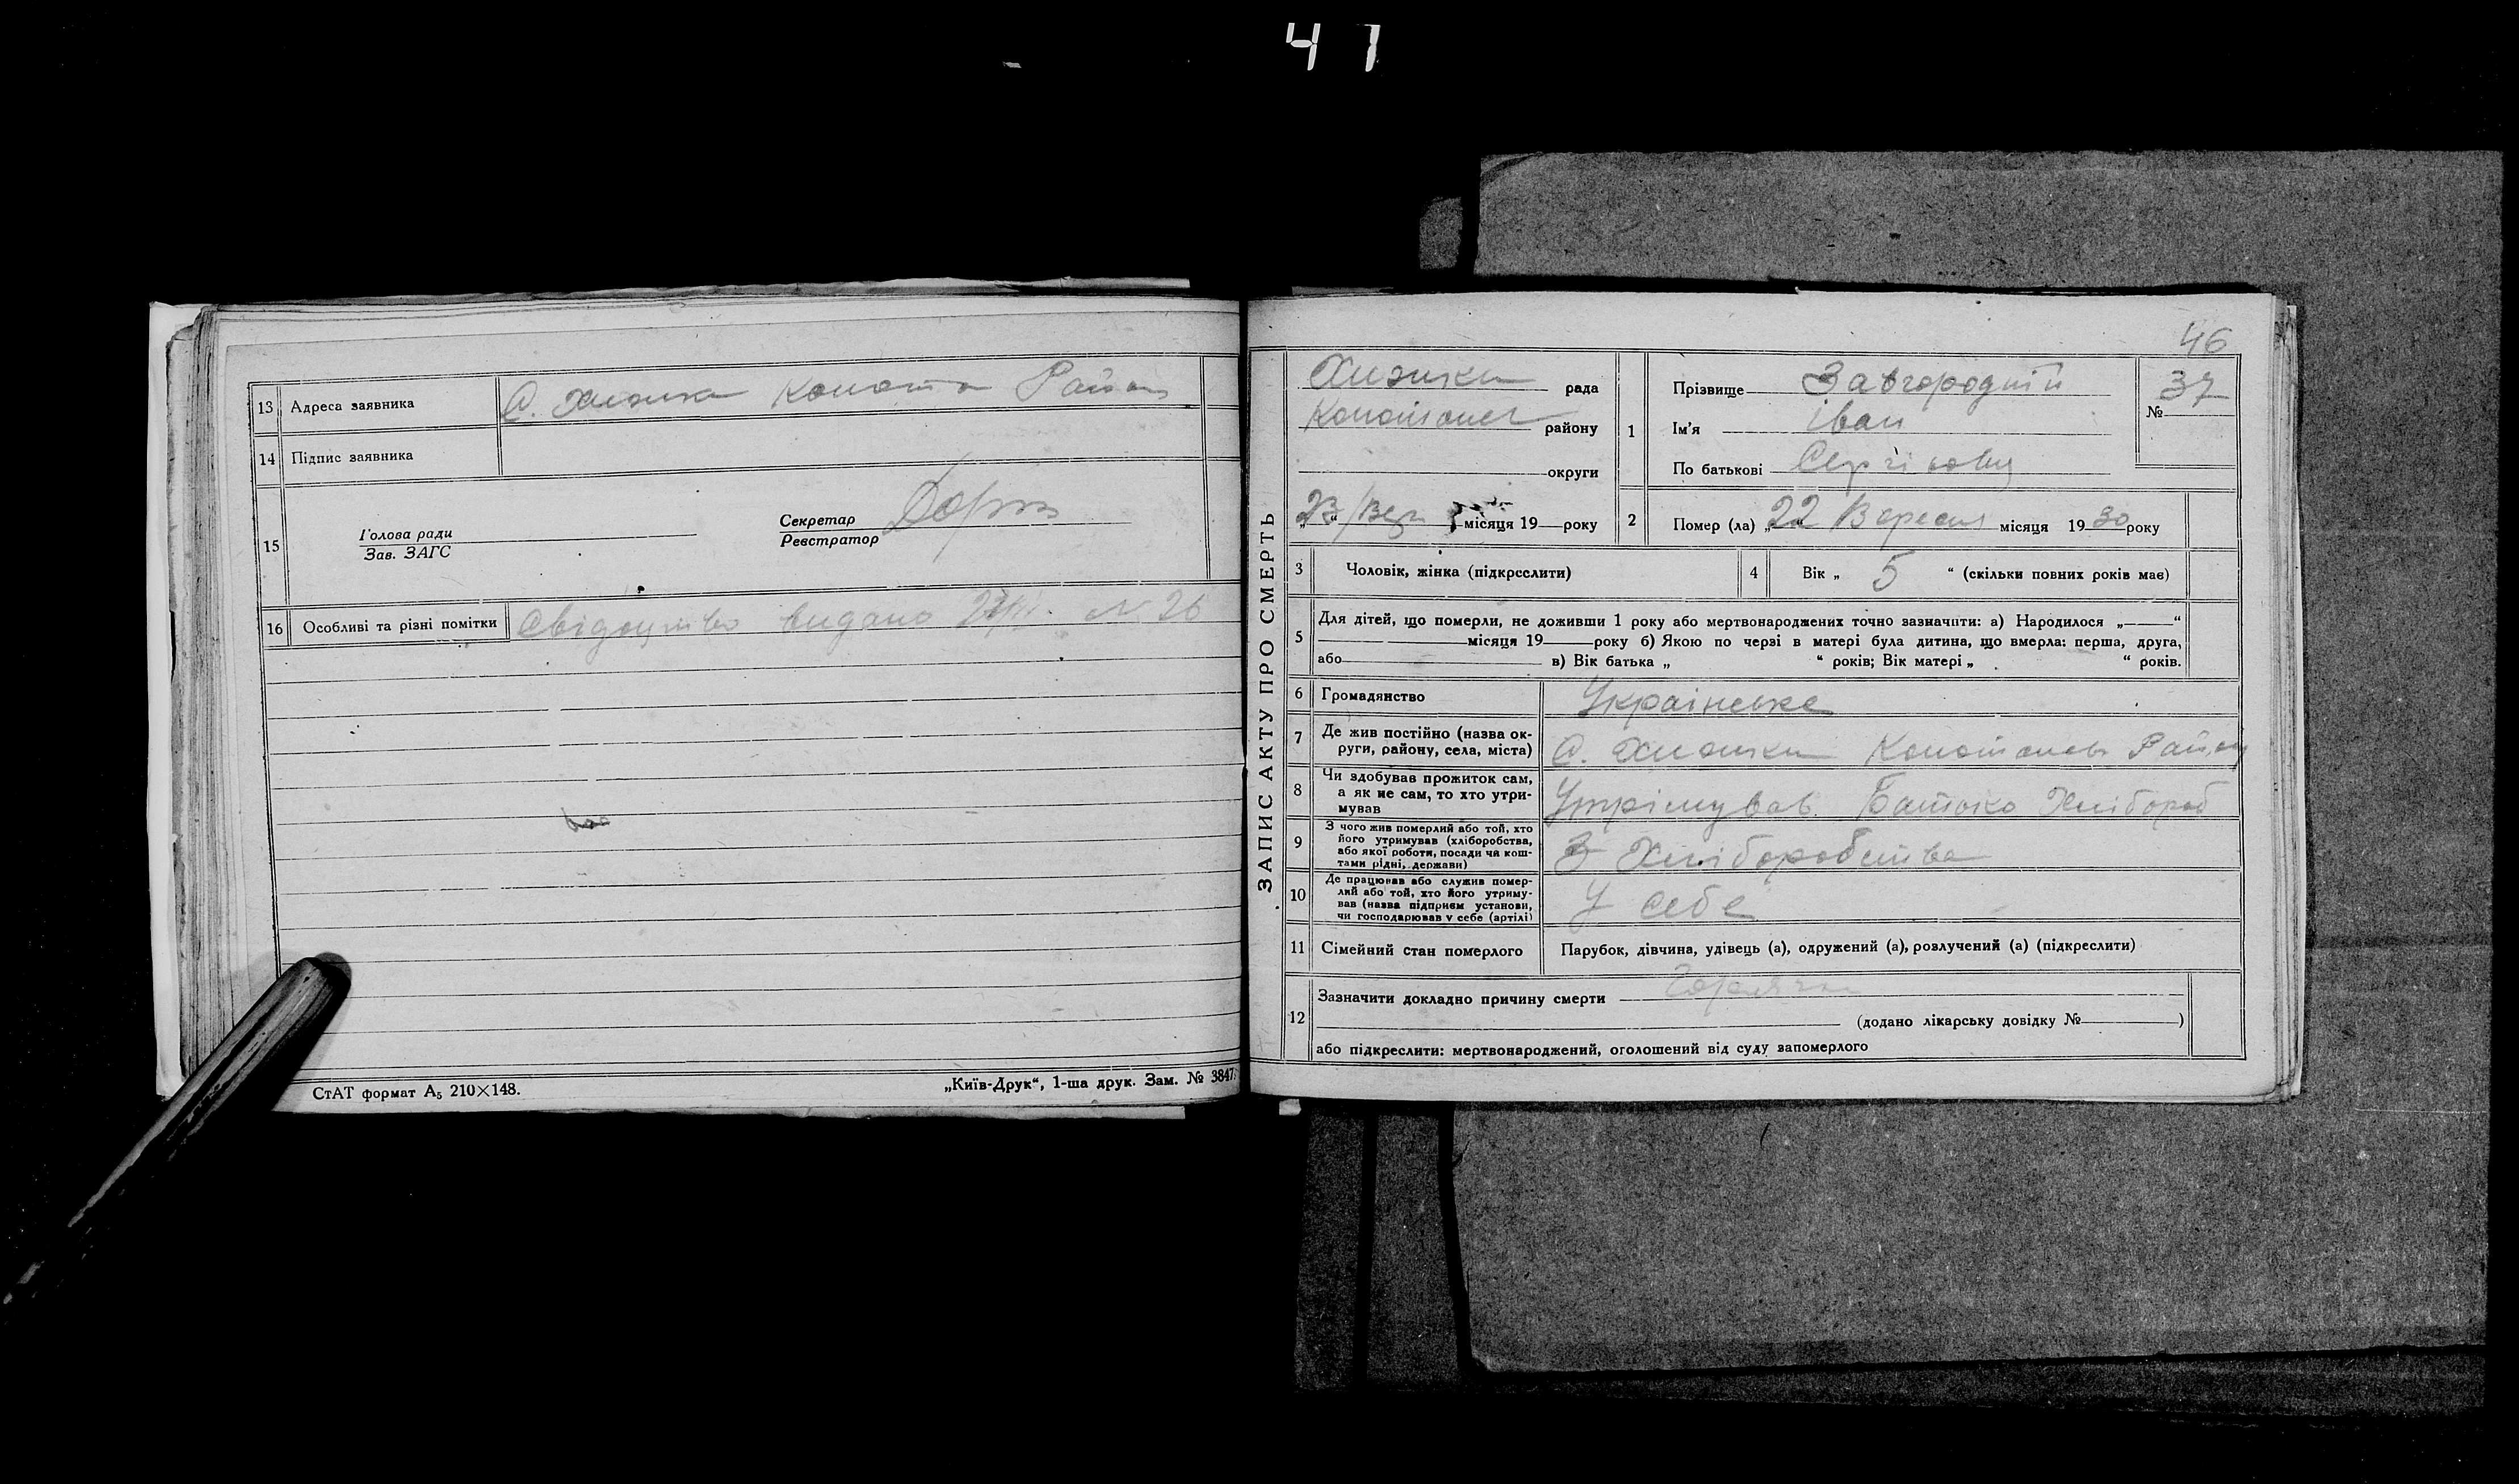 47
13 Адреса заявника С. Хижки Конотоп Район
14 Підпис заявника
15 Голова ради
Зав. ЗАГС
Секретар
Реєстратор
16 Особливі та різні помітки Свідоцтво видано № 26
СтАТ формат А5 210×148.
„Київ-Друк“, 1-ша друк. Зам. № 3847.
46
ЗАПИС АКТУ ПРО СМЕРТЬ
Хижки рада
Конотопськ району
округи
23/Вер місяця 19 року
1 Прізвище Завгородній
Ім'я Іван
По батькові Сергійович
37
№
2 Помер (ла) „22 Вересня місяця 1930 року
3 Чоловік, жінка (підкреслити)
4 Вік „ 5 “ (скільки повних років має)
5 Для дітей, що померли, не доживши 1 року або мертвонароджених точно зазначити: а) Народилося „ “
місяця 19 року б) Якою по черзі в матері була дитина, що вмерла: перша, друга,
або в) Вік батька „ “ років; Вік матері „ “ років.
6 Громадянство Українське
7 Де жив постійно (назва ок-
руги, району, села, міста) С. Хижки Конотопськ Район
8 Чи здобував прожиток сам,
а як не сам, то хто утри-
мував Утрімував Батько Хлібороб
9 З чого жив померлий або той, хто
його утримував (хліборобства,
або якої роботи, посади чи кош-
тами рідні, держави) З Хліборобства
10 Де працював або служив помер-
лий або той, хто його утриму-
вав (назва підприєм установи,
чи господарював у себе (артілі) У себе
11 Сімейний стан померлого Парубок, дівчина, удівець (а), одружений (а), розлучений (а) (підкреслити)
12 Зазначити докладно причину смерти Горячка
(додано лікарську довідку № )
або підкреслити: мертвонароджений, оголошений від суду запомерлого